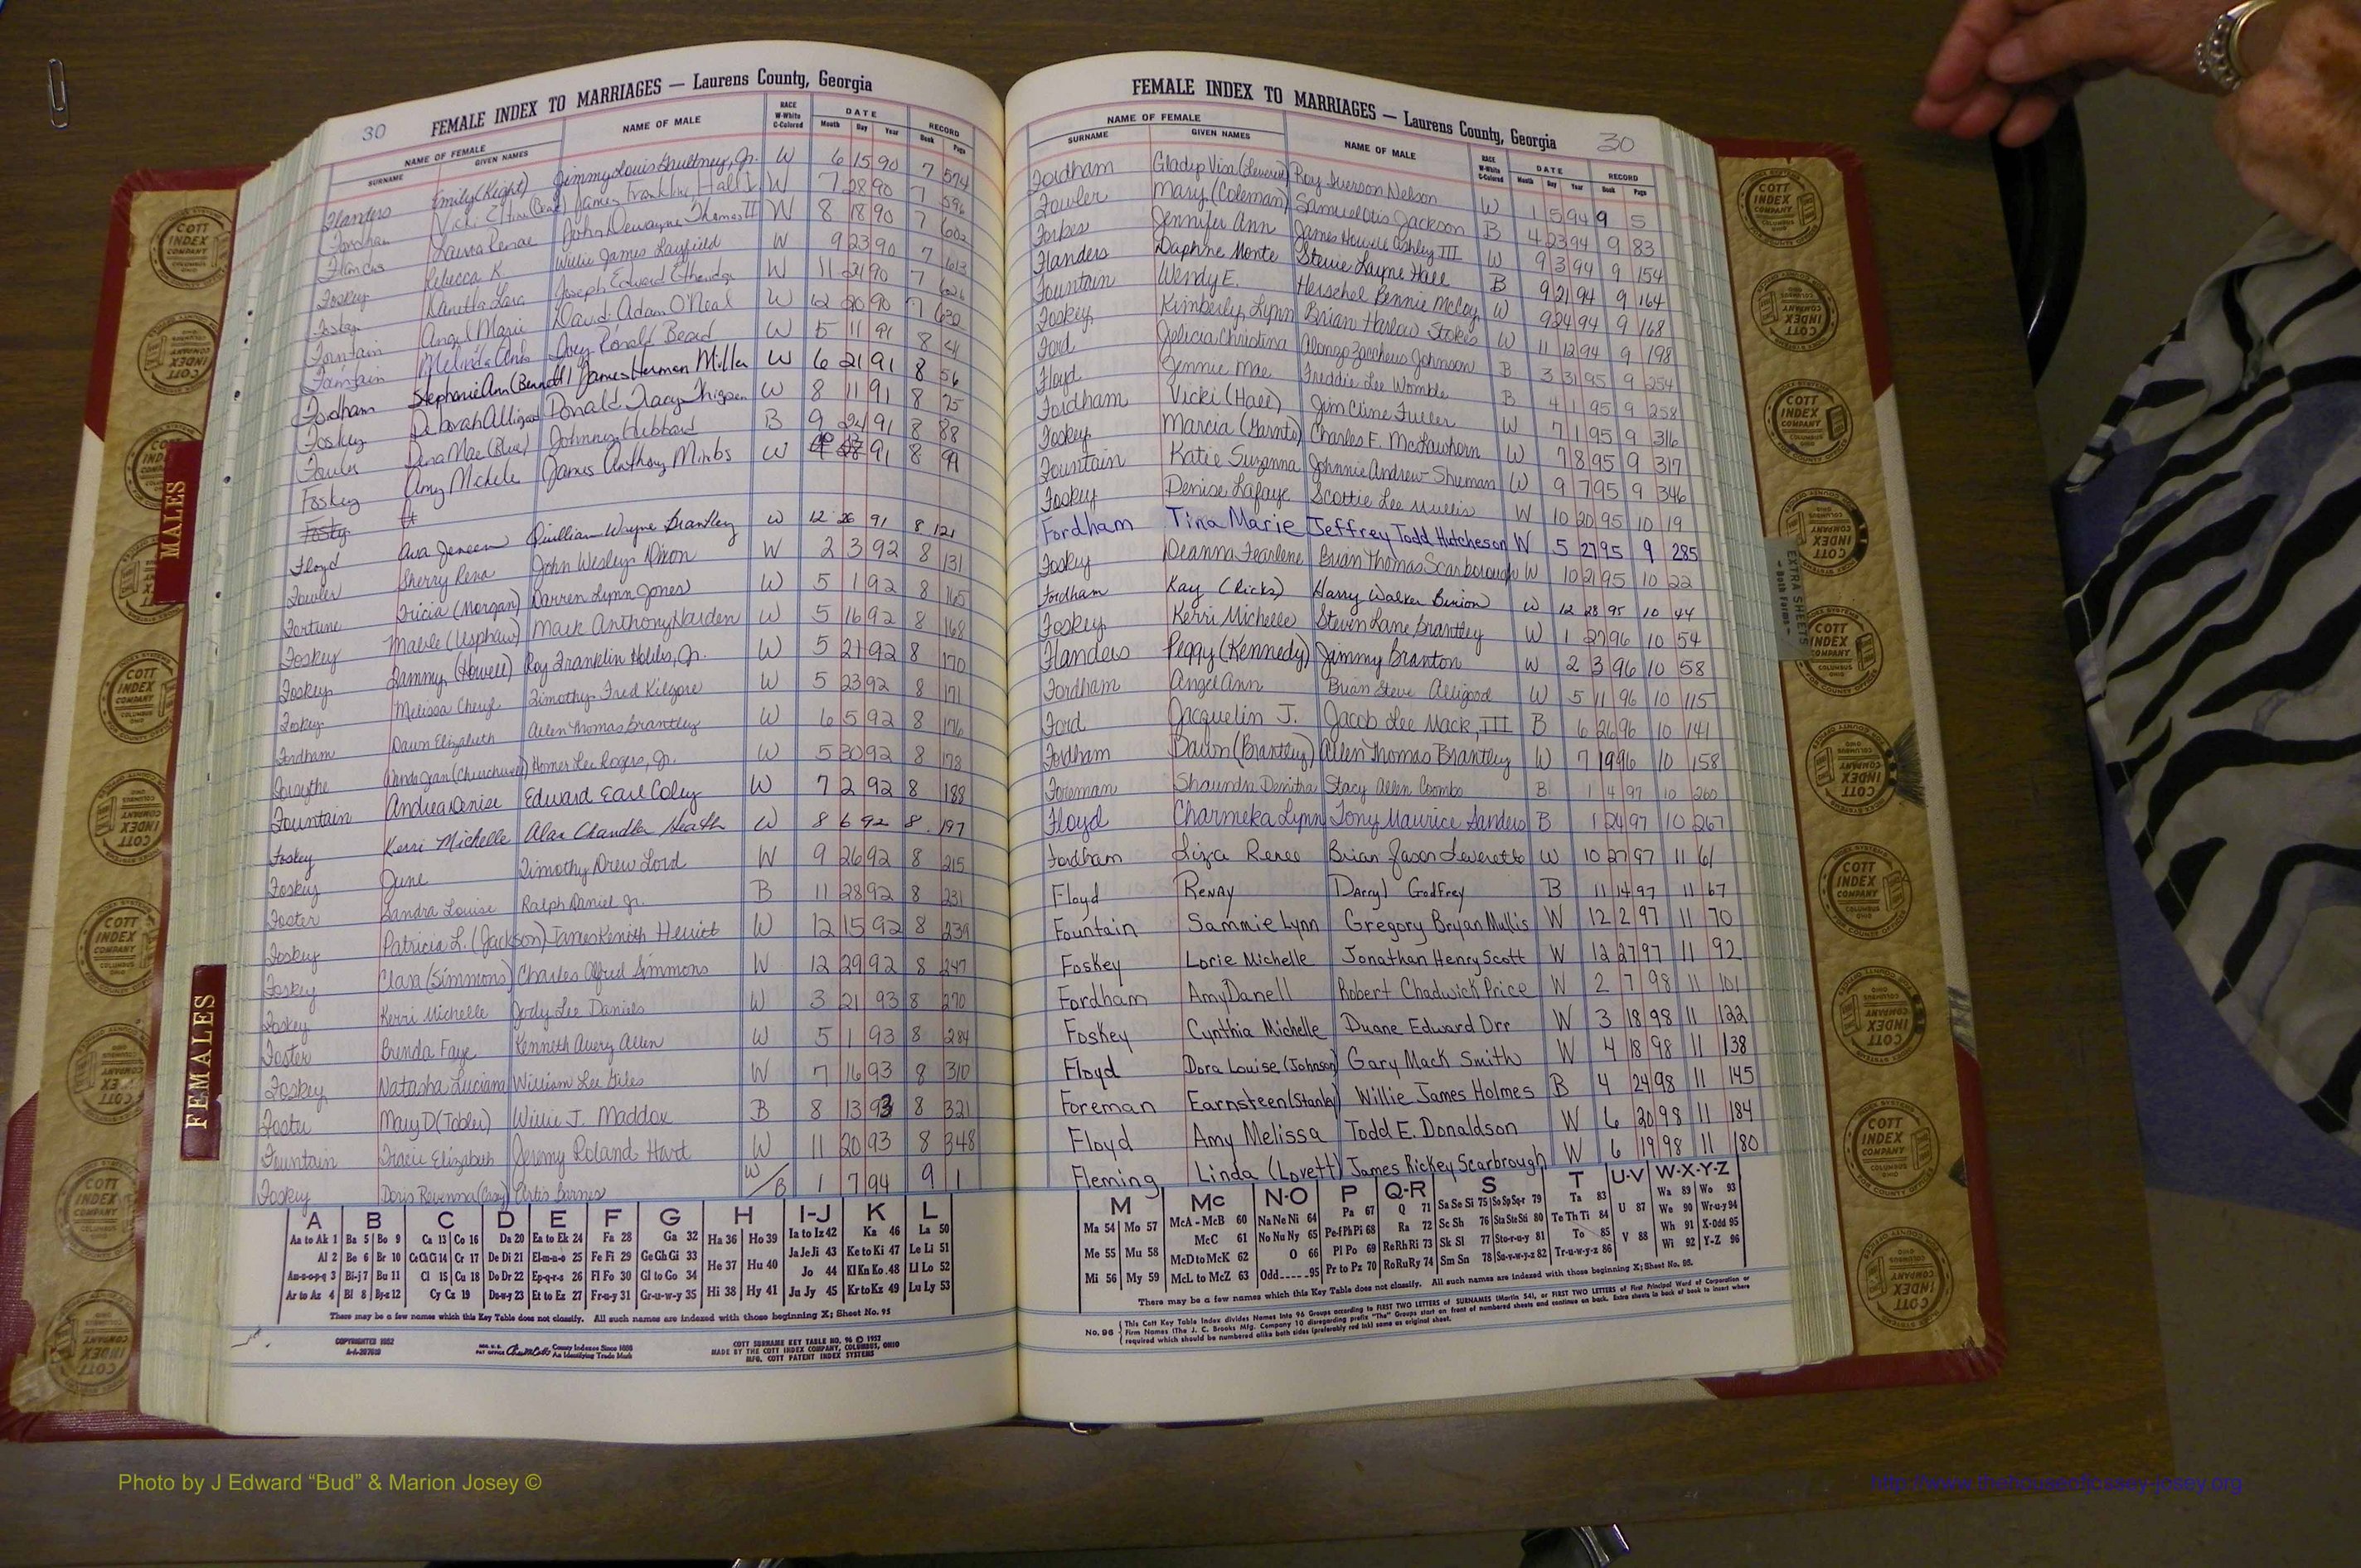 30 FEMALE INDEX TO MARRIAGES — Laurens County, Georgia
NAME OF FEMALE NAME OF MALE RACE W-White C-Colored DATE RECORD
SURNAME GIVEN NAMES Month Day Year Book Page
Flanders Emily (Keght) Jimmy Louis Gaultney, Jr. W 6 15 90 7 574
Fordham Vicki James Franklin Hall Jr. W 7 28 90 7 596
Francis Laura Renae John Dewayne Thomas II W 8 18 90 7 602
Foskey Rebecca K. Willie James Layfield W 9 23 90 7 613
Foskey Danetta Lara Joseph Edward Etheridge W 11 21 90 7 626
Fountain Angel Marie David Adam O'Neal W 12 20 90 7 630
Fountain Melinda Ann Joey Ronald Beard W 5 11 91 8 41
Fordham Stephanie Ann (Bennett) James Herman Miller W 6 21 91 8 56
Foskey Deborah Alligood Donald Tracy Thigpen W 8 11 91 8 75
Fowler Dena Mae (Blue) Johnny Hubbard B 9 24 91 8 88
Foskey Amy Michele James Anthony Mimbs W 91 8 99
Floyd Ava Jeneen Quillian Wayne Brantley W 12 26 91 8 121
Fowler Sherry Rena John Wesley Dixon W 2 3 92 8 131
Fortune Tricia (Morgan) Darren Lynn Jones W 5 1 92 8 165
Foskey Mable (Usphaw) Mark Anthony Harden W 5 16 92 8 168
Foskey Tammy (Howell) Roy Franklin Hobbs, Jr. W 5 21 92 8 170
Foskey Melissa Cheryl Timothy Fred Kilgore W 5 23 92 8 171
Fordham Dawn Elizabeth Allen Thomas Brantley W 6 5 92 8 176
Forsythe Wanda Jean (Churchwell) Homer Lee Rogers, Jr. W 5 30 92 8 178
Fountain Andrea Denise Edward Earl Coley W 7 2 92 8 188
Foskey Kerri Michelle Alan Chandler Heath W 8 6 92 8 197
Foskey June Timothy Drew Lord W 9 26 92 8 215
Foster Sandra Louise Ralph Daniel Jr. B 11 28 92 8 231
Foskey Patricia L. (Jackson) James Kenith Herriot W 12 15 92 8 239
Foskey Clara (Simmons) Charles Alfred Simmons W 12 29 92 8 247
Foskey Kerri Michelle Jody Lee Daniels W 3 21 93 8 270
Foster Brenda Faye Kenneth Avery Allen W 5 1 93 8 284
Foskey Natasha Luciana William Lee Giles W 7 16 93 8 310
Foster Mary D (Tobler) Willie J. Maddox B 8 13 93 8 321
Fountain Tracie Elizabeth Jeremy Roland Hart W 11 20 93 8 348
Foskey Doris Revenna (Casy) Curtis Barnes W/B 1 7 94 9 1
A B C D E F G H I-J K L
Aa to Ak 1 Ba 5 Bo 9 Ca 13 Co 16 Da 20 Ea to Ek 24 Fa 28 Ga 32 Ha 36 Ho 39 Ia to Iz 42 Ka 46 La 50
Al 2 Be 6 Br 10 CeChCi 14 Cr 17 De Di 21 El-m-n-o 25 Fe Fi 29 Ge Gh Gi 33 He 37 Hu 40 Ja Je Ji 43 Ke to Ki 47 Le Li 51
Am-n-o-p-q 3 Bi-j 7 Bu 11 Cl 15 Cu 18 Do Dr 22 Ep-q-r-s 26 Fl Fo 30 Gl to Go 34 Jo 44 Kl Kn Ko 48 Ll Lo 52
Ar to Az 4 Bl 8 By-z 12 Cy Cz 19 Du-w-y 23 Et to Ez 27 Fr-u-y 31 Gr-u-w-y 35 Hi 38 Hy 41 Ju Jy 45 Kr to Kz 49 Lu Ly 53
There may be a few names which this Key Table does not classify. All such names are indexed with those beginning X; Sheet No. 95
COPYRIGHTED 1952
County Indexes Since 1888
An Identifying Trade Mark
COTT SURNAME KEY TABLE NO. 96 © 1952
MADE BY THE COTT INDEX COMPANY, COLUMBUS, OHIO
MFG. COTT PATENT INDEX SYSTEMS
FEMALE INDEX TO MARRIAGES — Laurens County, Georgia 30
NAME OF FEMALE NAME OF MALE RACE W-White C-Colored DATE RECORD
SURNAME GIVEN NAMES Month Day Year Book Page
Fordham Gladys Visa (Leverett) Roy Iverson Nelson W 1 5 94 9 5
Fowler Mary (Coleman) Samuel Otis Jackson B 4 23 94 9 83
Forbes Jennifer Ann James Howell Ashley III W 9 3 94 9 154
Flanders Daphne Monte Stevie Layne Hall B 9 21 94 9 164
Fountain Wendy E. Herschel Bennie McCoy W 9 24 94 9 168
Foskey Kimberly Lynn Brian Harlow Stokes W 11 12 94 9 198
Ford Felicia Christina Alonzo Zaccheus Johnson B 3 31 95 9 254
Floyd Jennie Mae Freddie Lee Womble B 4 1 95 9 258
Fordham Vicki (Hall) Jim Cline Fuller W 7 1 95 9 316
Foskey Marcia (Garnto) Charles F. McLawhorn W 7 8 95 9 317
Fountain Katie Suzanna Johnnie Andrew Shuman W 9 7 95 9 346
Foskey Denise Lafaye Scottie Lee Mullis W 10 20 95 10 19
Fordham Tina Marie Jeffrey Todd Hutcheson W 5 27 95 9 285
Foskey Deanna Fearlene Brian Thomas Scarborough W 10 21 95 10 22
Fordham Kay (Ricks) Harry Walker Binion W 12 28 95 10 44
Foskey Kerri Michelle Steven Lane Brantley W 1 27 96 10 54
Flanders Peggy (Kennedy) Jimmy Branton W 2 3 96 10 58
Fordham Angel Ann Brian Steve Alligood W 5 11 96 10 115
Ford Jacquelin J. Jacob Lee Mack, III B 6 26 96 10 141
Fordham Dawn (Brantley) Allen Thomas Brantley W 7 19 96 10 158
Foreman Shaundra Denitra Stacy Allen Coombs B 1 4 97 10 260
Floyd Charmeka Lynn Tony Maurice Sanders B 1 24 97 10 267
Fordham Liza Renee Brian Jason Leverette W 10 27 97 11 61
Floyd Renay Darryl Godfrey B 11 14 97 11 67
Fountain Sammie Lynn Gregory Bryan Mullis W 12 2 97 11 70
Foskey Lorie Michelle Jonathan Henry Scott W 12 27 97 11 92
Fordham Amy Danell Robert Chadwick Price W 2 7 98 11 101
Foskey Cynthia Michelle Duane Edward Orr W 3 18 98 11 122
Floyd Dora Louise (Johnson) Gary Mack Smith W 4 18 98 11 138
Foreman Earnsteen (Stanley) Willie James Holmes B 4 24 98 11 145
Floyd Amy Melissa Todd E. Donaldson W 6 20 98 11 184
Fleming Linda (Lovett) James Rickey Scarbrough W 6 19 98 11 180
M Mc N-O P Q-R S T U-V W-X-Y-Z
Ma 54 Mo 57 McA - McB 60 Na Ne Ni 64 Pa 67 Q 71 Sa Se Si 75 So Sp Sq-r 79 Ta 83 U 87 Wa 89 Wo 93
Me 55 Mu 58 McC 61 No Nu Ny 65 Pe-f Ph Pi 68 Ra 72 Sc Sh 76 Sta Ste Sti 80 Te Th Ti 84 We 90 Wr-u-y 94
McD to McK 62 O 66 Pl Po 69 Re Rh Ri 73 Sk Sl 77 Sto-r-u-y 81 To 85 V 88 Wh 91 X-Odd 95
Mi 56 My 59 McL to McZ 63 Odd 95 Pr to Pz 70 Ro Ru Ry 74 Sm Sn 78 Su-v-w-y-z 82 Tr-u-w-y-z 86 Wi 92 Y-Z 96
There may be a few names which this Key Table does not classify. All such names are indexed with those beginning X; Sheet No. 95.
No. 96
This Cott Key Table Index divides Names into 96 Groups according to FIRST TWO LETTERS of SURNAMES (Martin 54), or FIRST TWO LETTERS of First Principal Word of Corporation or
Firm Names (The J. C. Brooks Mfg. Company 10 disregarding prefix "The" Groups start on front of numbered sheets and continue on back. Extra sheets in back of book to insert where
required which should be numbered alike both sides (preferably red ink) same as original sheet.
MALES
FEMALES
EXTRA SHEETS
COTT INDEX COMPANY COLUMBUS OHIO
Photo by J Edward “Bud” & Marion Josey ©
http://www.thehouseofjossey-josey.org